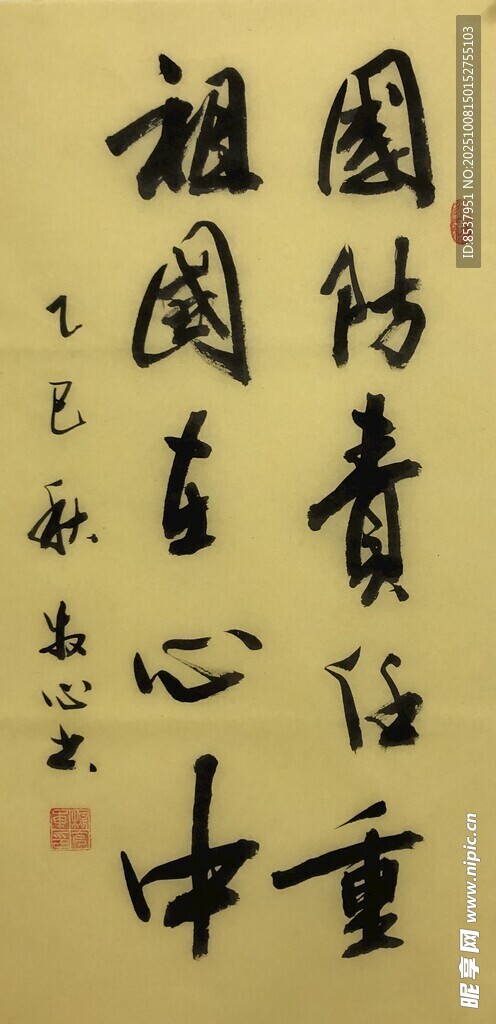 國防責任重
祖國在心中
乙巳秋 牧心书
ID:8537951 NO:20251008150152755103
昵享网 www.nipic.cn